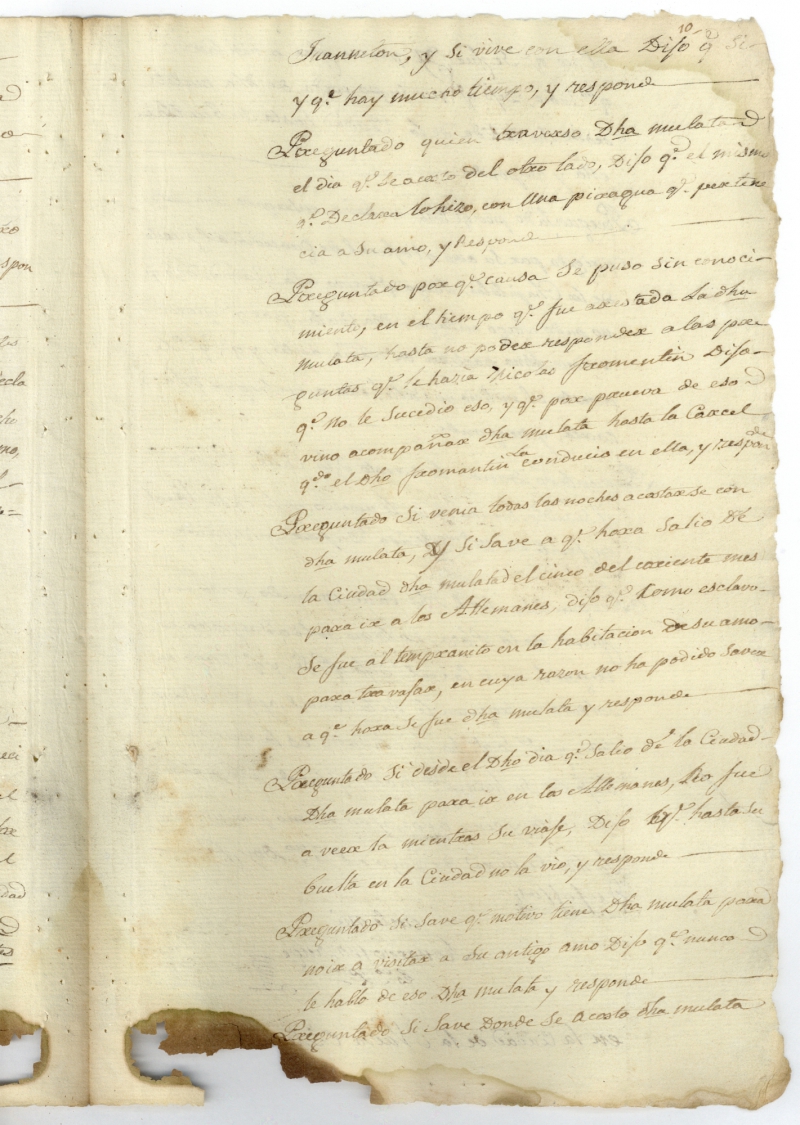 10
Juanneton, y si vive con ella Dijo qe. si
y qe. hay mucho tiempo, y responde
Preguntado quien traverso Dha mulata
el dia qe. se aresto del otro lado, Dijo qe. el mismo
qe. Declara lo hizo, con Una piragua qe. pertene
cia a su amo, y Responde
Preguntado por qe. causa se puso sin conoci-
miento, en el tiempo qe. fue arestada La dha
mulata, hasta no poder responder a las pre
guntas qe. le hazia Nicolas fromentin Dijo
qe. no le sucedio eso, y qe. par prueva de eso
vino acompañar dha mulata hasta la Carcel
qdo. el Dho fromantin La conducia en ella, y responde
Preguntado Si venia todas las noches acostarse con
dha mulata, Y si save a qe. hora salio De
la Ciudad dha mulata el cinco del coriente mes
para ir a los Allemanes, dijo qe. Como esclavo
se fue al tempranito en la habitacion de su amo
para travajar, en cuya razon no ha podido saver
a qe. hora se fue dha mulata y responde
Preguntado Si desde el Dho dia qe. salio de la Ciudad
Dha mulata para ir en los Allemanes, fue
a veer la mientras su viaje, Dijo qe. hasta su
buelta en la Ciudad no la vio, y responde
Preguntado si save qe. motivo tiene Dha mulata para
no ir a visitar a su antigo amo Dijo qe. nunca
le hablo de eso Dha mulata y responde
Preguntado si save Donde se acosto dha mulata
spon
ecla
cho
eci
el
dad